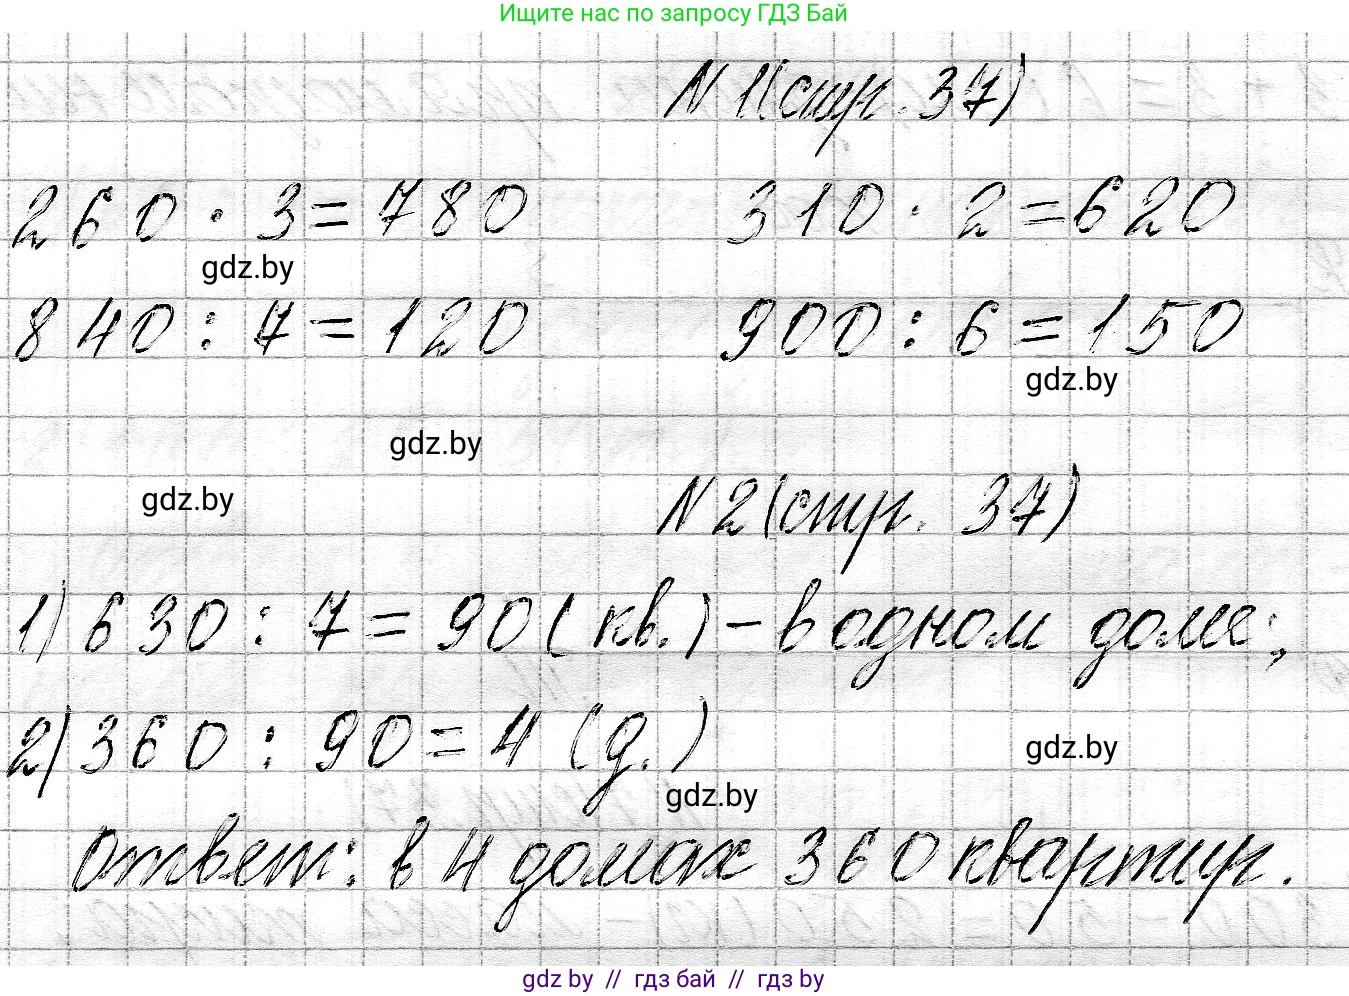 Ищите нас по запросу ГДЗ Бай
N 1(стр. 37)
260 · 3 = 780 310 · 2 = 620
gdz.by
840 : 7 = 120 900 : 6 = 150
gdz.by
gdz.by
gdz.by
N 2(стр. 37)
1) 630 : 7 = 90 (кв.) – в одном доме;
2) 360 : 90 = 4 (д.)
gdz.by
gdz.by
Ответ: в 4 домах 360 квартир.
gdz.by // гдз бай // гдз by